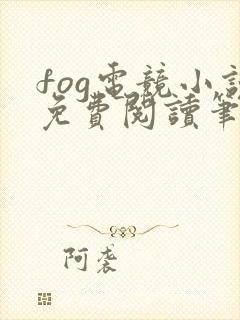 fog電競小說
免費閱讀筆
阿袭